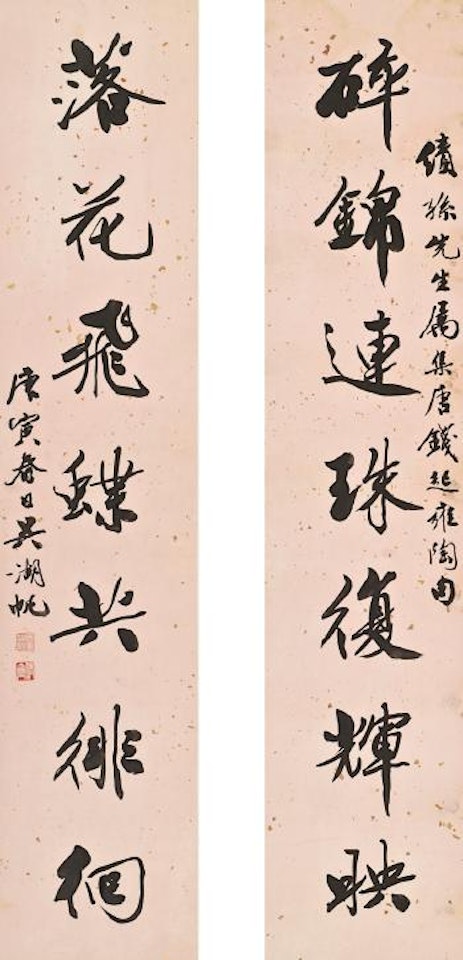 碎錦連珠復輝映
績孫先生屬集唐錢起雍陶句
落花飛蝶共徘徊
庚寅春日吳湖帆